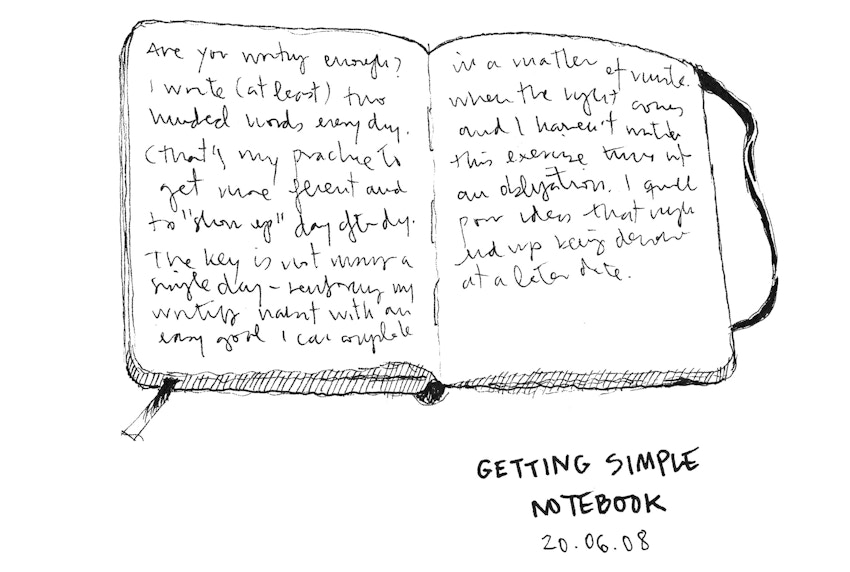 Are you writing enough?
I write (at least) two
hundred words every day.
(that's my practice to
get more fluent and
to "show up" day after day.
The key is not missing a
single day – reinforcing my
writing habit with an
easy goal I can complete
in a matter of minutes.
when the night comes
and I haven't written
this exercise turns into
an obligation. I quill
poor ideas that might
end up being
at a later date.
GETTING SIMPLE
NOTEBOOK
20.06.08